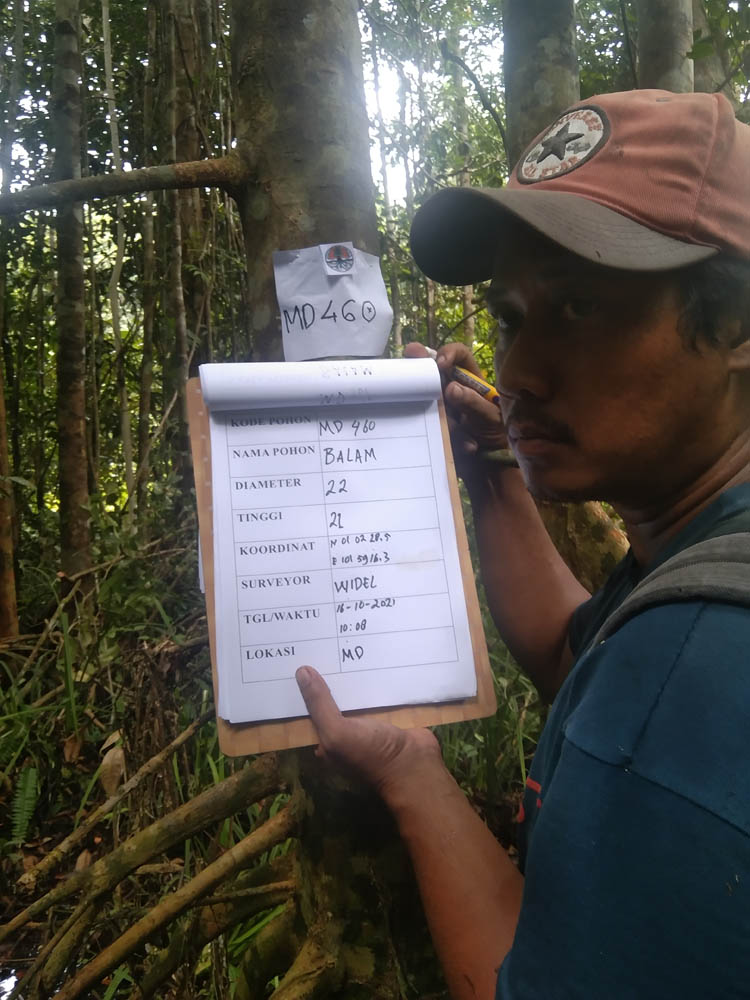 MD 460
KODE POHON MD 460
NAMA POHON BALAM
DIAMETER 22
TINGGI 21
KOORDINAT N 01 02 28.5
E 101 59 16.3
SURVEYOR WIDEL
TGL/WAKTU 16-10-2021
10:08
LOKASI MD